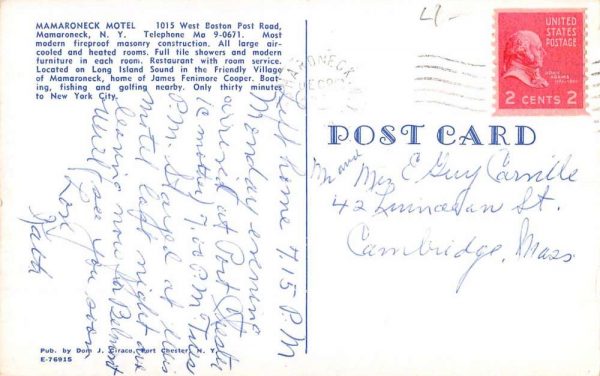 MAMARONECK MOTEL 1015 West Boston Post Road,
Mamaroneck, N. Y. Telephone Ma 9-0671. Most
modern fireproof masonry construction. All large air-
cooled and heated rooms. Full tile showers and modern
furniture in each room. Restaurant with room service.
Located on Long Island Sound in the Friendly Village
of Mamaroneck, home of James Fenimore Cooper. Boat-
ing, fishing and golfing nearby. Only thirty minutes
to New York City.
Left home 7.15 P.M
Monday evening
arrived at Port
7.00 P.M Tues
P.M. Stayed at this
motel last night are
leaving now for Belmont
Will see you soon
Love
Pub. by Dom J. Port Chester, N. Y.
E-7691S
UNITED
STATES
POSTAGE
JOHN
ADAMS
2 CENTS 2
POST CARD
Mr and Mrs E Guy Carville
42 St.
Cambridge, Mass